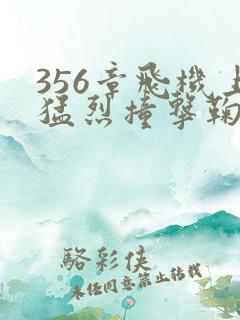 356章飛機上
猛烈撞擊鞠
駱彩俠
未經同意禁止轉載